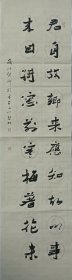 君自故鄉來應知故鄉事
来日綺窗前寒梅著花未